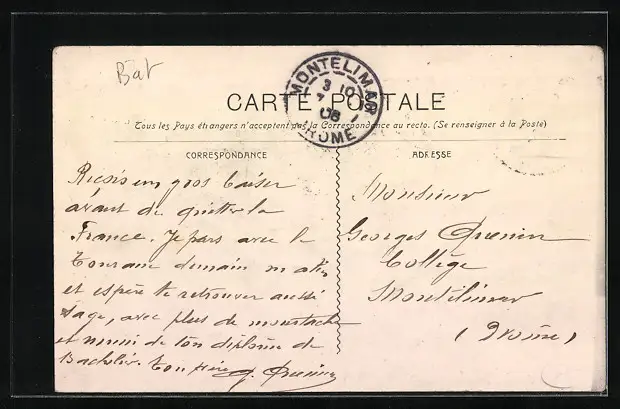 Bat
MONTELIMAR
3 10
7
08
DROME
CARTE POSTALE
Tous les Pays étrangers n'acceptent pas la Correspondance au recto. (Se renseigner à la Poste)
CORRESPONDANCE
Reçois un gros baiser
avant de quitter la
France. Je pars avec le
Touraine demain matin
et espère te retrouver aussi
sage, avec plus de moustache
et muni de ton diplôme de
Bachelier. Ton père
ADRESSE
Monsieur
Georges
Collège
Montélimar
(Drôme)